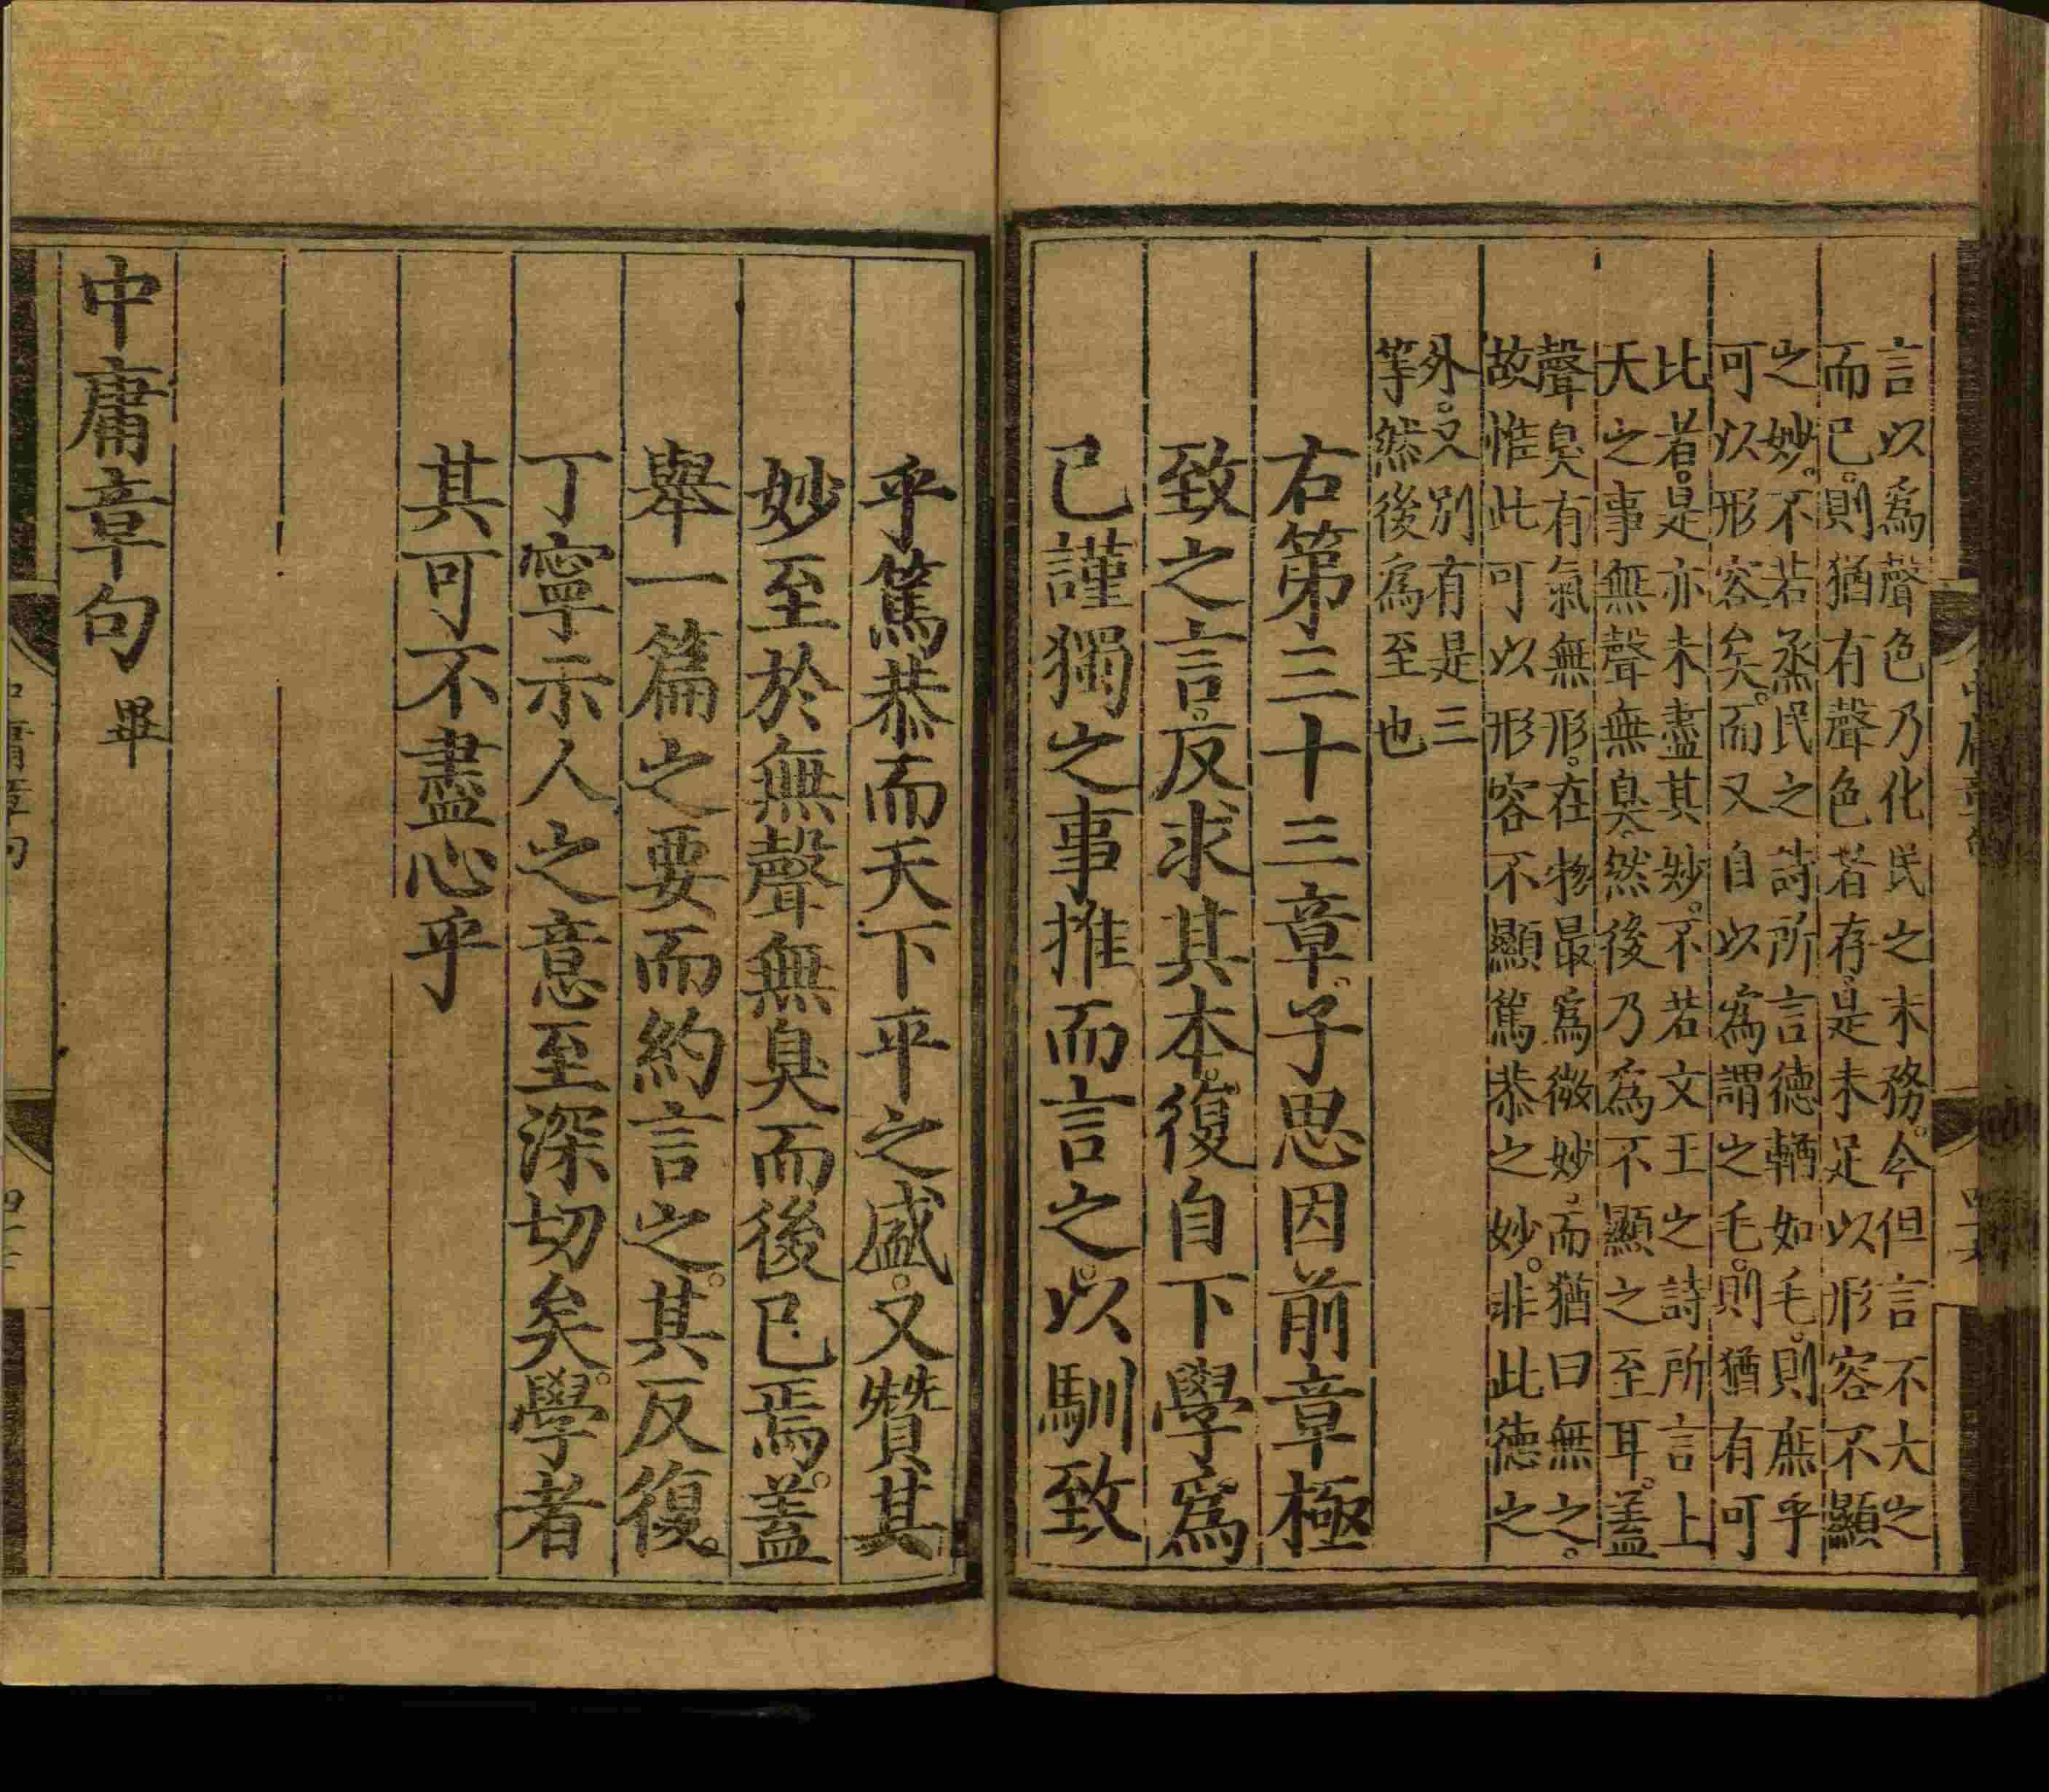 言以爲聲色乃化民之末務。今但言不大之
而已。則猶有聲色者存。是未足以形容不顯
之妙。不若烝民之詩所言德輶如毛。則庶乎
可以形容矣。而又自以爲謂之毛。則猶有可
比者。是亦未盡其妙。不若文王之詩所言上
天之事無聲無臭。然後乃爲不顯之至耳。蓋
聲臭有氣無形。在物最爲微妙。而猶曰無之。
故惟此可以形容不顯篤恭之妙。非此德之
外。又別有是三
等然後爲至也
右第三十三章。子思因前章極
致之言。反求其本。復自下學爲
己謹獨之事推而言之。以馴致
乎篤恭而天下平之盛。又贊其
妙至於無聲無臭而後已焉。蓋
舉一篇之要而約言之。其反復。
丁寧示人之意至深切矣。學者
其可不盡心乎
中庸章句 畢